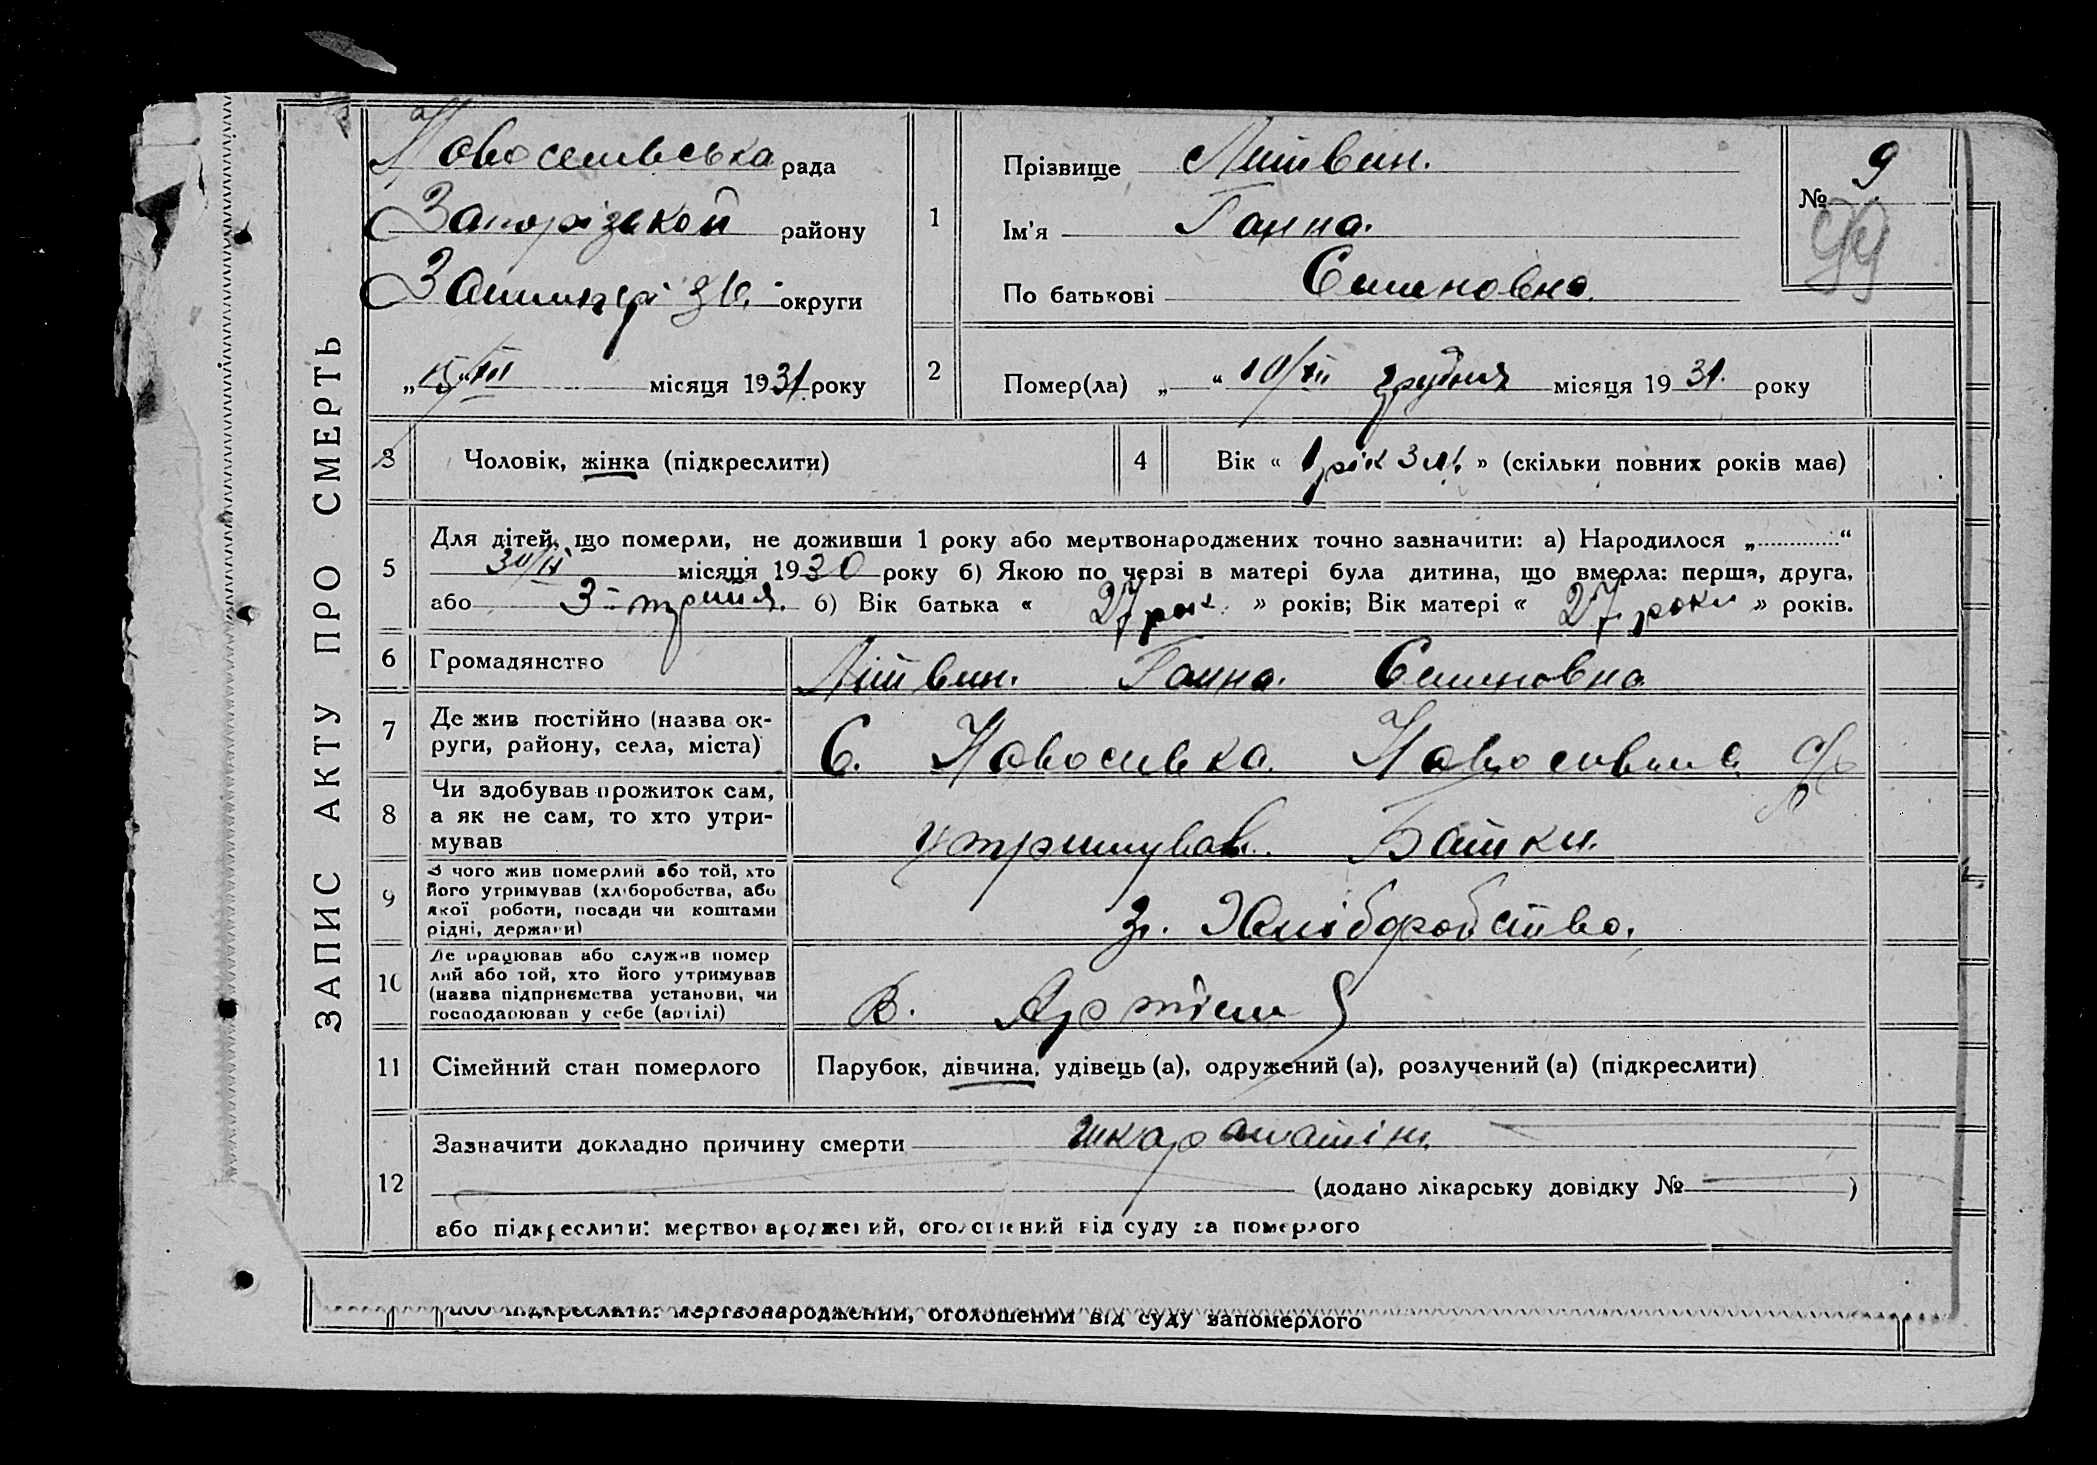 ЗАПИС АКТУ ПРО СМЕРТЬ
Новоселивська рада
Запорізькой району
округи
„15/XII місяця 1931 року
1
Прізвище Литвин.
Ім'я Ганна.
По батькові Семеновна.
№ 9
99
2
Помер(ла) „ “ 10/XII грудня місяця 1931. року
3
Чоловік, жінка (підкреслити)
4
Вік « 1 рік 3 м. » (скільки повних років має)
5
Для дітей, що померли, не доживши 1 року або мертвонароджених точно зазначити: а) Народилося „..............“
місяця 1930 року б) Якою по черзі в матері була дитина, що вмерла: перша, друга,
або 3-третя. б) Вік батька « 27 рок. » років; Вік матері « 27 роки » років.
6
Громадянство
Літвин. Ганна. Семеновна
7
Де жив постійно (назва ок-
руги, району, села, міста)
С. Новосивка.
8
Чи здобував прожиток сам,
а як не сам, то хто утри-
мував
утримував. Батки.
9
З чого жив померлий або той, хто
його утримував (хліборобства, або
якої роботи, посади чи коштами
рідні, держави)
З. Хліборобство.
10
Де працював або служив помер
лий або той, хто його утримував
(назва підприємства установи, чи
господарював у себе (артілі)
В. Артіли
11
Сімейний стан померлого
Парубок, дівчина, удівець (а), одружений (а), розлучений (а) (підкреслити)
12
Зазначити докладно причину смерти шкарлатіни.
(додано лікарську довідку № )
або підкреслити: мертвонароджений, оголошений від суду за померлого
або підкреслити: мертвонароджений, оголошений від суду запомерлого